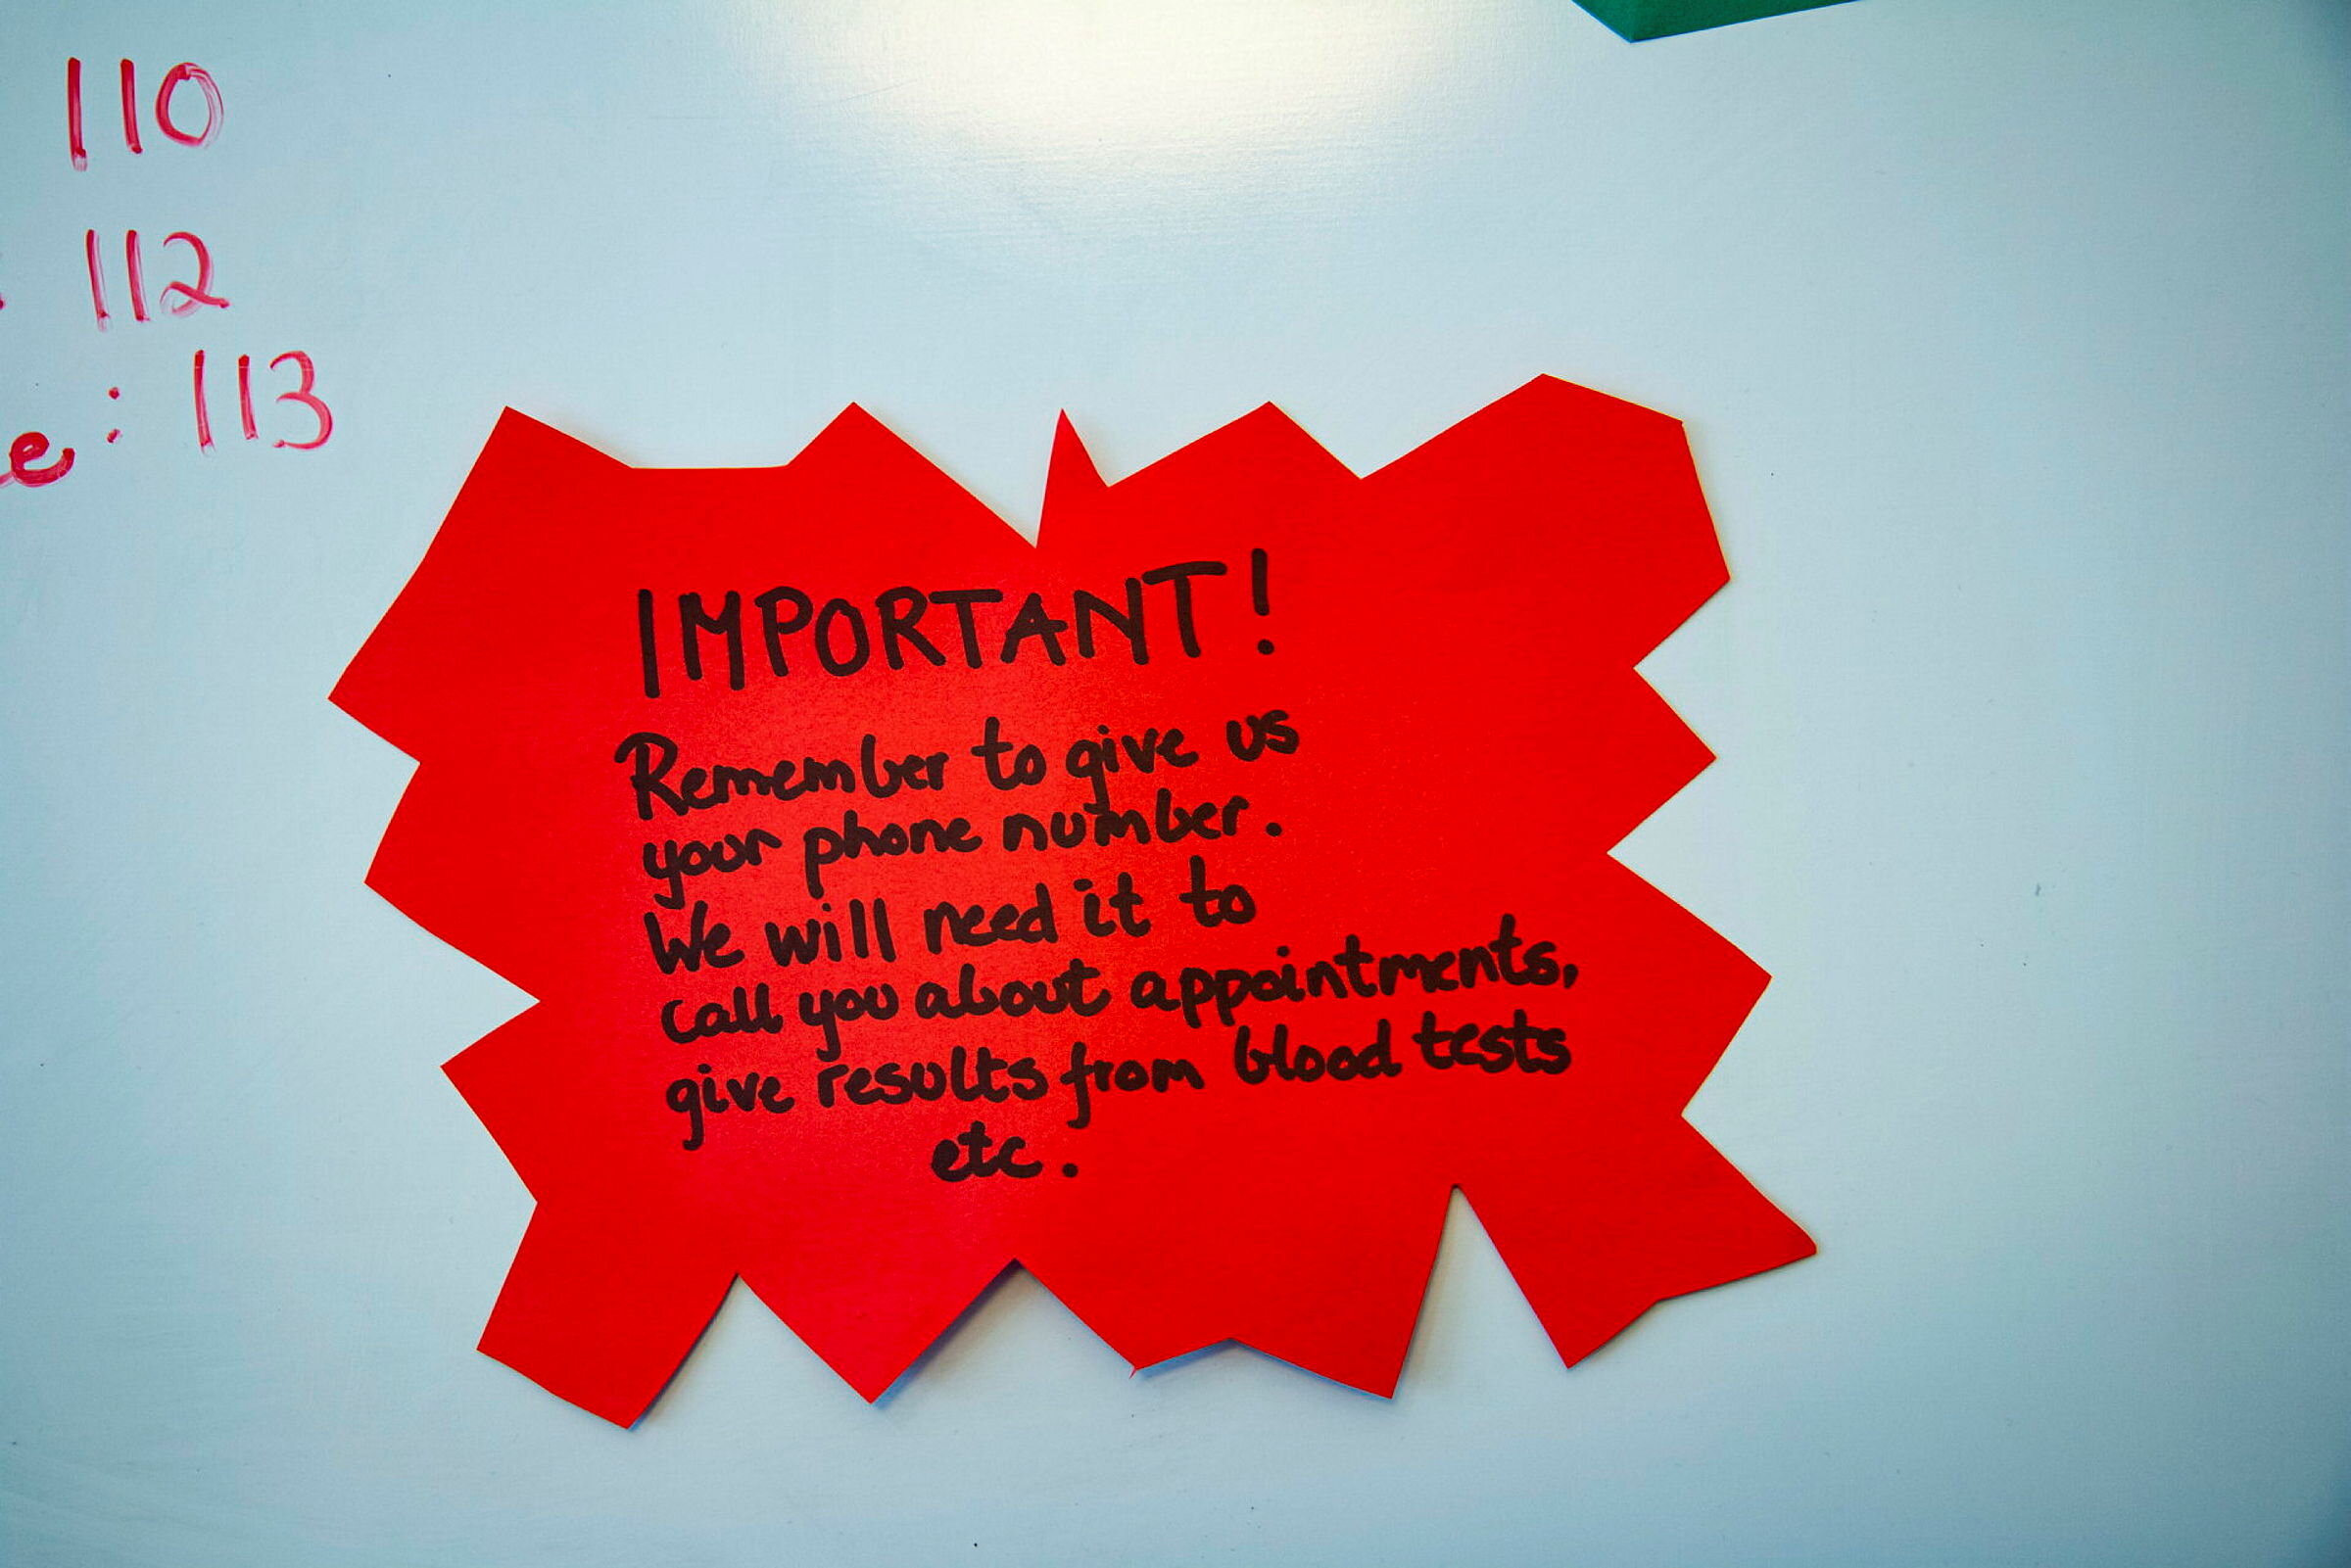 110
112
e : 113
IMPORTANT!
Remember to give us
your phone number.
We will need it to
call you about appointments,
give results from blood tests
etc.